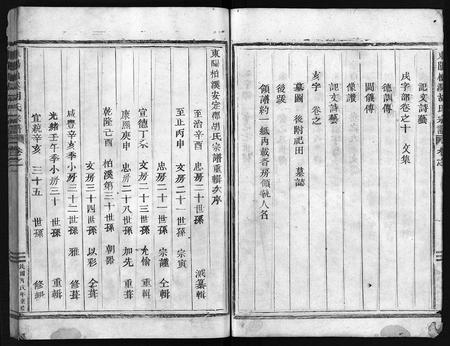 東陽柏溪胡氏宗譜
記文詩藝
戌字部卷之十 文集
德訓傳
閫儀傳
像讚
記文詩藝
亥字 卷之
墓圖 後附祀田 墓誌
後跋
領譜約一紙內載各房領執人名
東陽柏溪安定郡胡氏宗譜重輯次序
至治 忠房二十世孫 纂輯
至正丙申 文房二十一世孫 宗寅
忠房二十一世孫 宗謹 仝輯
宣德丁未 文房二十三世孫 允愉 重輯
康熙庚申 忠房二十八世孫 加先 重葺
乾隆己酉 柏溪第三十世孫 朝器
文房三十四世孫 以彩 仝葺
咸豐辛亥季小房三十二世孫 雅 修葺
光緒壬午季小房三十 世孫 重輯
宣統辛亥 三十五 世孫 修輯